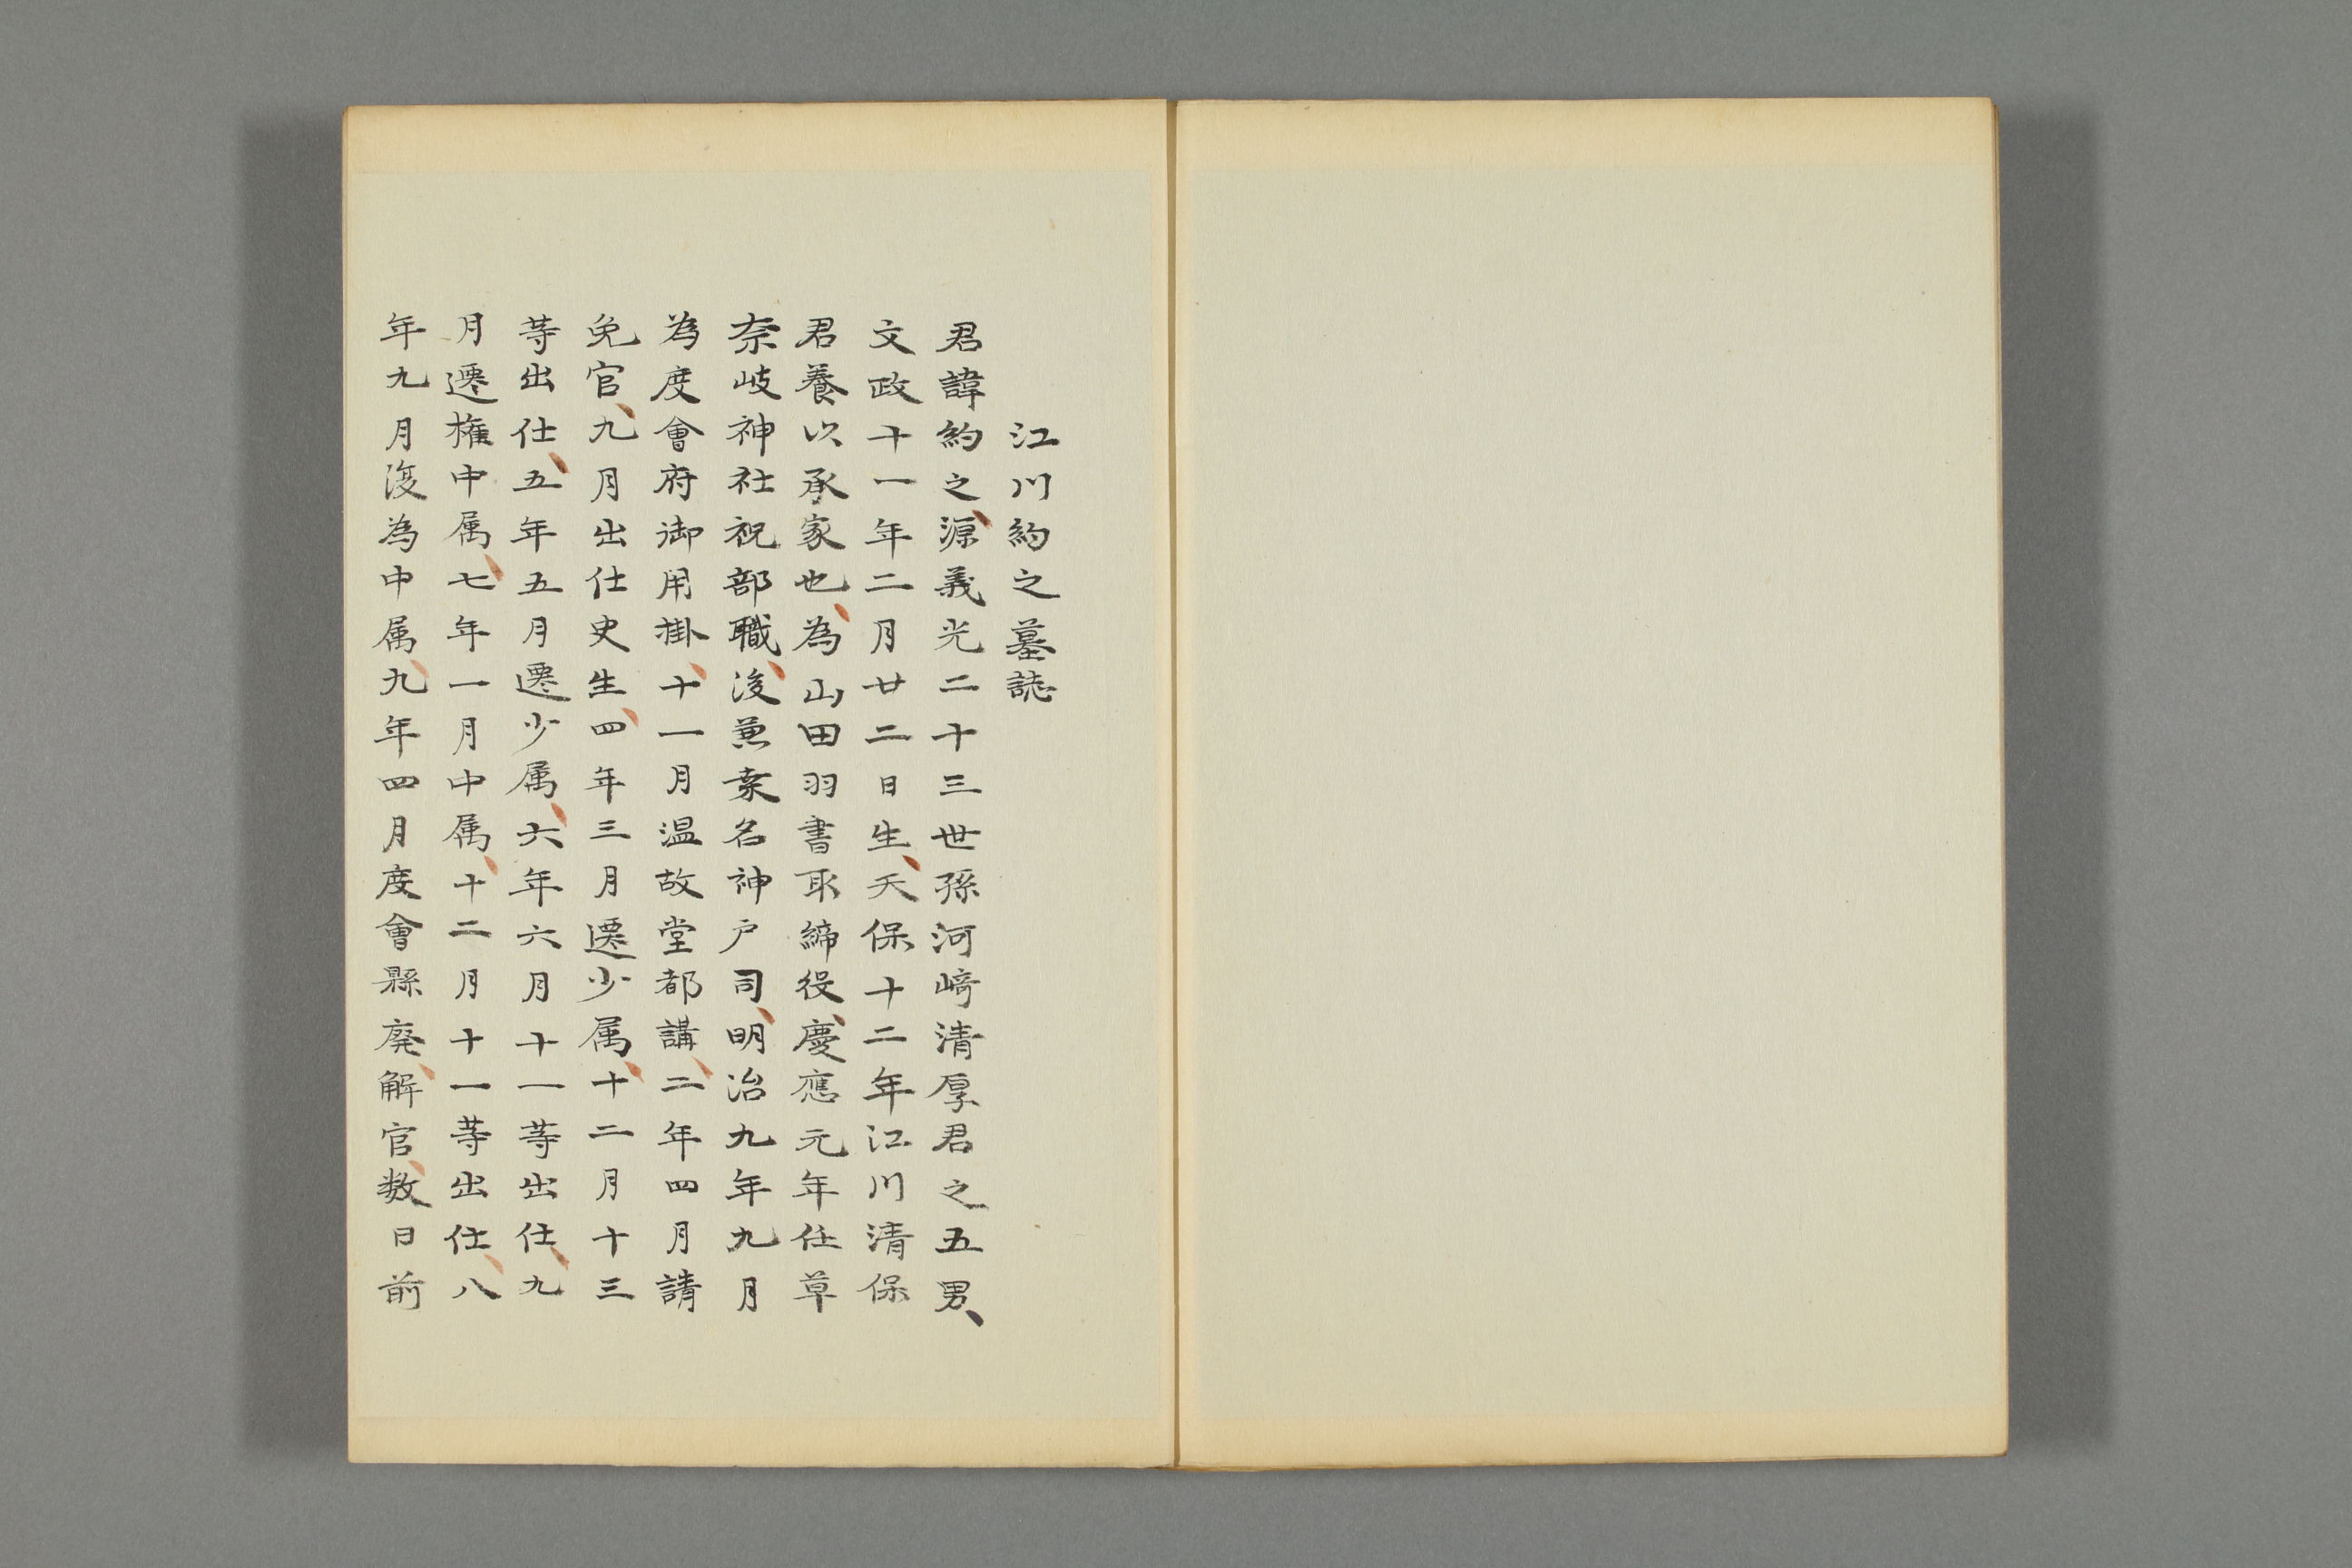 江川約之墓誌
君諱約之、源義光二十三世孫河﨑清厚君之五男、
文政十一年二月廿二日生、天保十二年江川清保
君養以承家也、為山田羽書取締役、慶應元年任草
奈岐神社祝部職、後兼桒名神戸司、明治九年九月
為度會府御用掛、十一月温故堂都講、二年四月請
免官、九月出仕史生、四年三月遷少属、十二月十三
等出仕、五年五月遷少属、六年六月十一等出仕、九
月遷権中属、七年一月中属、十二月十一等出仕、八
年九月復為中属、九年四月度會縣廃、解官、数日前